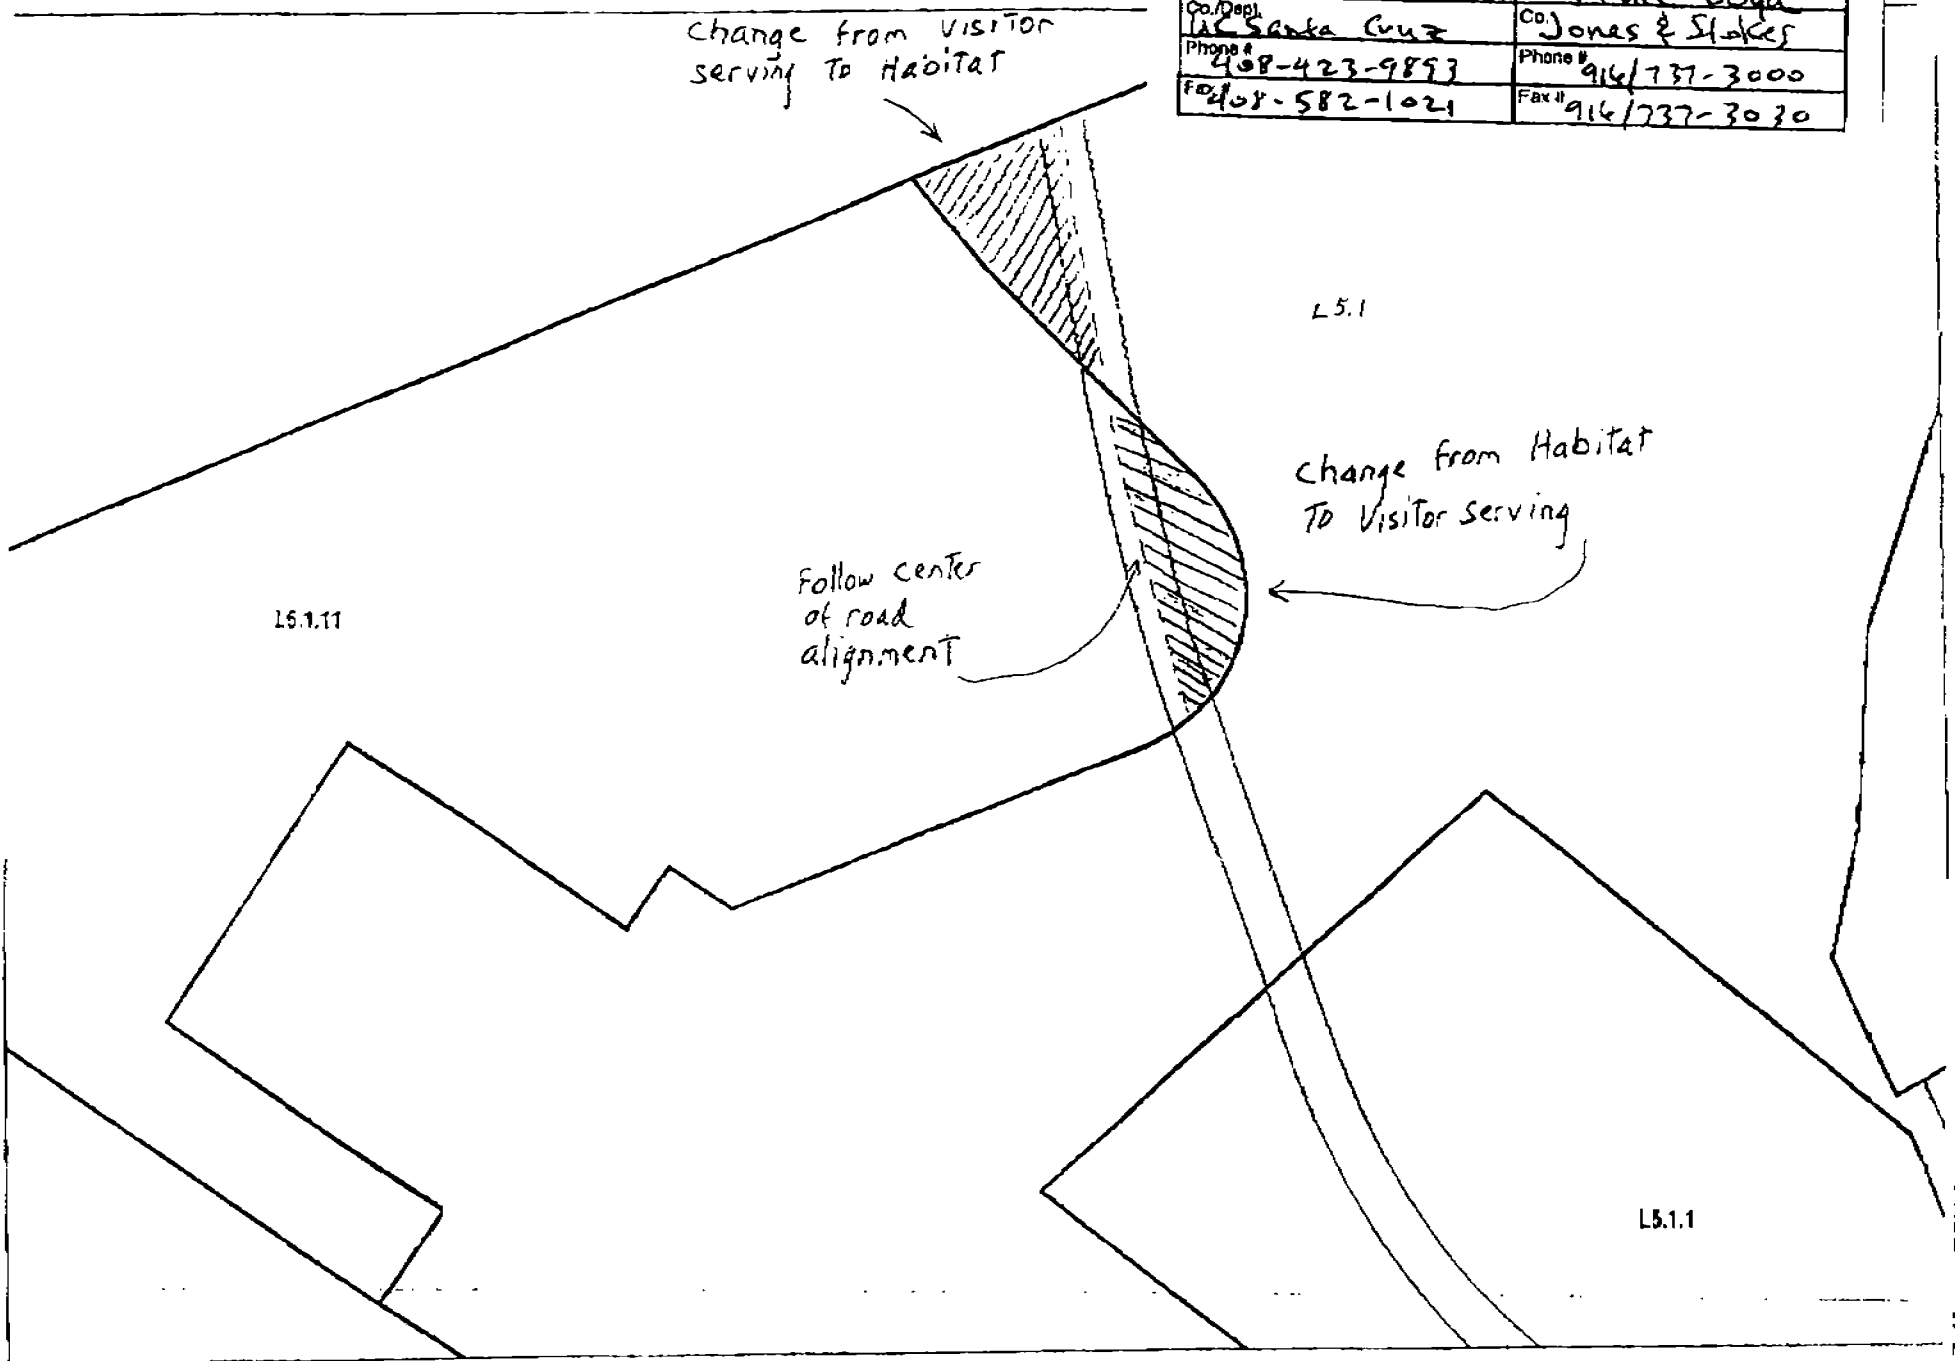 Change from Visitor
serving To Habitat
Co./Dept.
UC Santa Cruz
Co. Jones & Stokes
Phone # 408-423-9893
Phone # 916/737-3000
Fax # 408-582-1021
Fax # 916/737-3030
L5.1
Change from Habitat
To Visitor serving
Follow center
of road
alignment
L5.1.11
L5.1.1